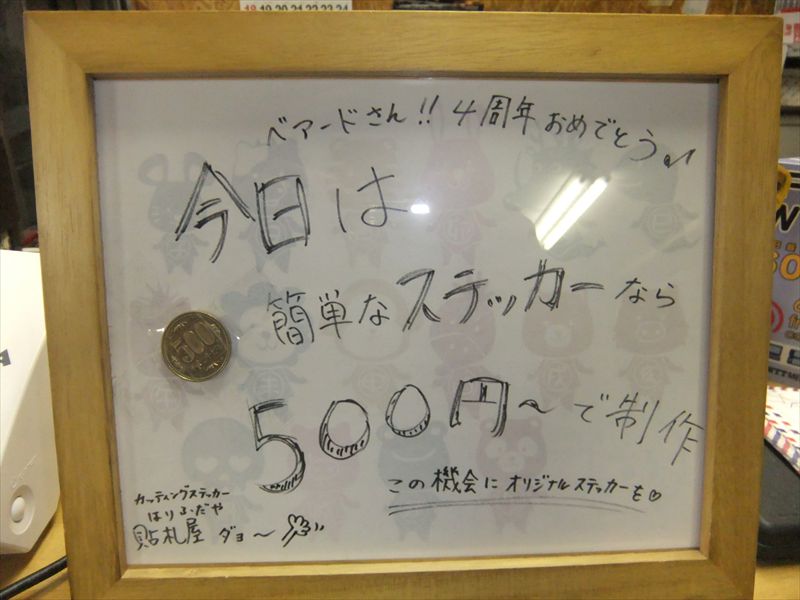 18 19 20 21 22 23 24
ベアードさん!! 4周年おめでとう
今日は
簡単なステッカーなら
500
500円〜で制作
この機会にオリジナルステッカーを♡
カッティングステッカー
はりふだや
貼札屋 ダョ〜